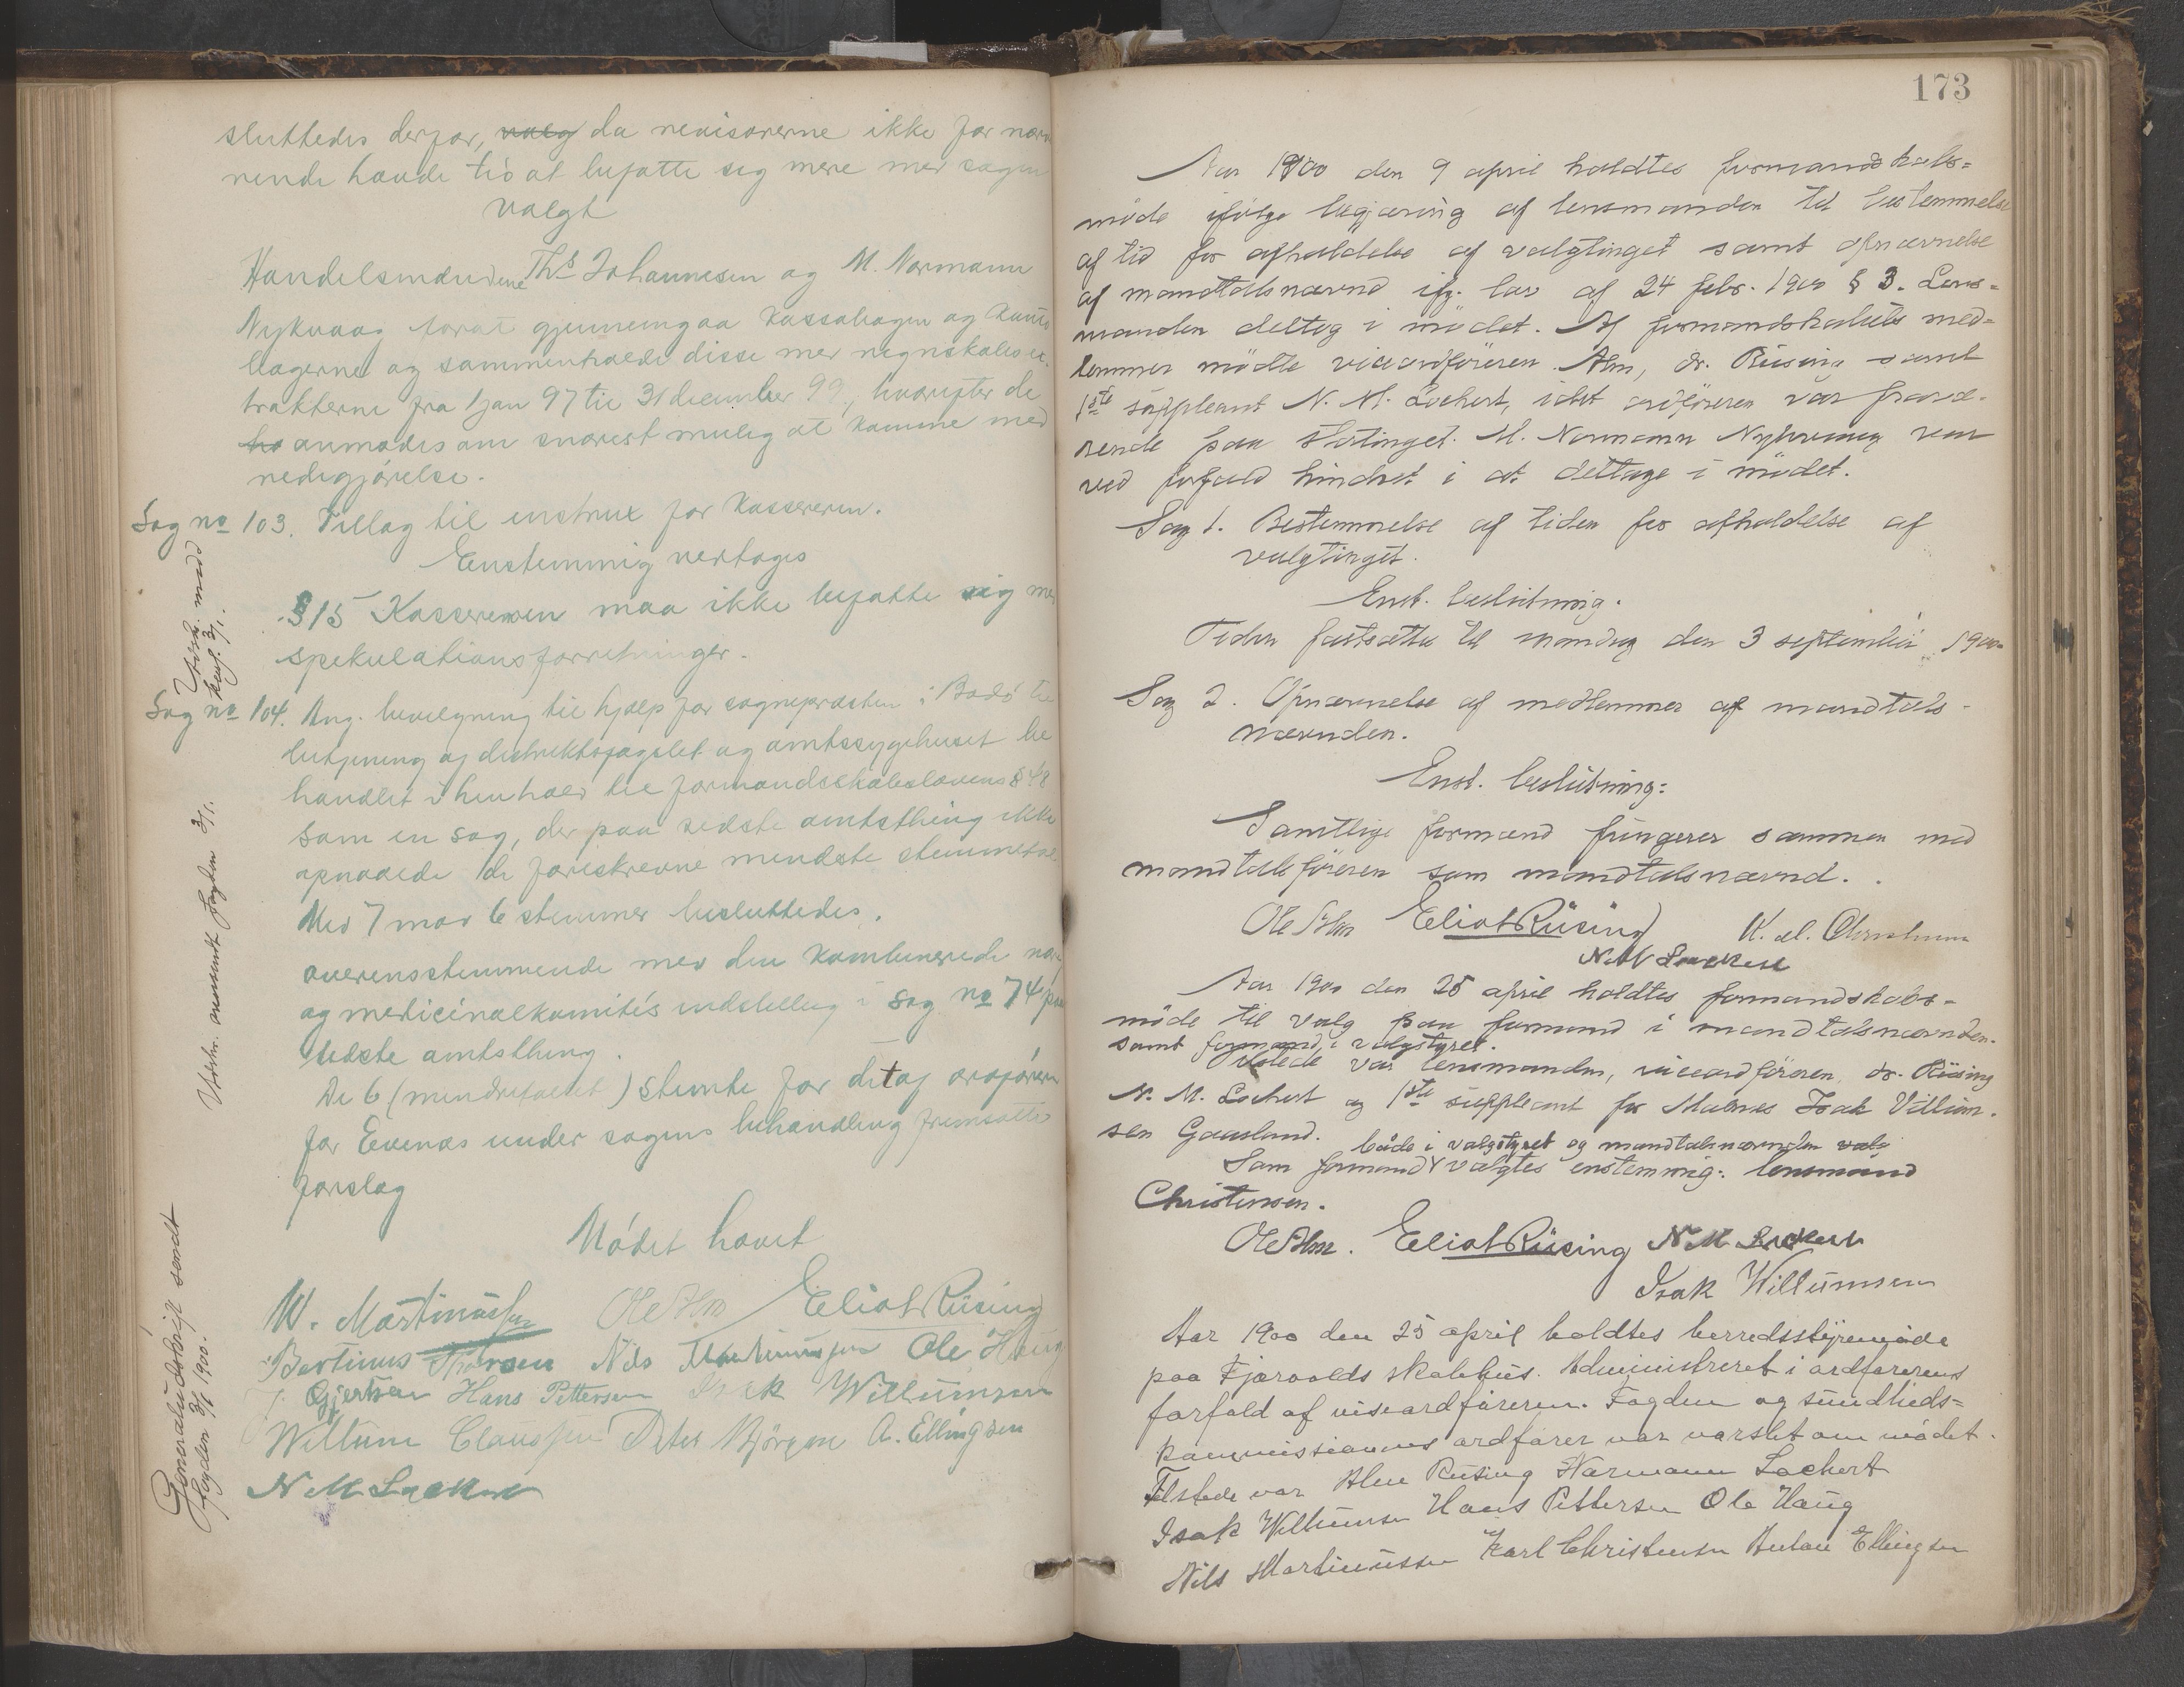 sluttedes derfor, valg da revisorerne ikke for nærv
rende havde tid at befatte sig mere med sagen
valgt
Handelsmændene Ths Johannesen og M. Normann
Nykvaag forat gjennemgaa kassabogen og
bilagerne og sammenholde disse med regnskabs
trakterne fra 1 jan 97 til 31 december 99, hvorefter de
anmodes om snarest mulig at komme med
redegjørelse.
Sag no 103. Tillæg til instrux for kassereren.
Enstemmig vedtages
§ 15 Kassereren maa ikke befatte sig med
spekulationsforretninger.
Sag no 104. Ang. bevilgning til hjælp for sognepræsten i Bodø til
betjening af distriktsfængslet og amtssygehuset be
handlet i henhold til formandskabslovens § 48
som en sag, der paa sidste amtsthing ikke
opnaaede de foreskrevne mindste stemmetal
Med 7 mod 6 stemmer besluttedes.
overensstemmende med den kombinerede
og medicinalkomités indstilling i sag no 74 paa
sidste amtsthing.
De 6 (mindretallet) stemte for det af ordføreren
for Evenæs under sagens behandling fremsatte
forslag
Mødet hævet
W. Martinussen Ole Alm Eliot Rüsing
Bertinus Thoresen Nils Martinussen Ole Haug
Gjertsen Hans Pettersen Isak Willumsen
Willum Claussen Peter Björgen A. Ellingsen
N M Lockert
Udskr. medd
kass. 3/1.
Udskr. oversendt fogden 3/1.
Generaludskrift sendt
fogden 3/1 1900.
173
Aar 1900 den 9 april holdtes formandskabs=
møde ifølge begjæring af lensmanden til bestemmelse
af tid for afholdelse af valgtinget samt opnævnelse
af mandtalsnævnd ifg. lov af 24 febr. 1900 § 3. Lens=
manden deltog i mødet. Af formandskabets med=
lemmer mødte viceordføreren Alm, dr. Rüsing samt
1ste suppleant N. M. Lockert, idet ordføreren var fravæ-
rende paa stortinget. M. Normann Nykvaag var
ved forfald hindret i at deltage i mødet.
Sag 1. Bestemmelse af tiden for afholdelse af
valgtinget.
Enst. beslutning.
Tiden fastsættes til mandag den 3 september 1900
Sag 2. Opnævnelse af medlemmer af mandtals-
nævnden.
Enst. beslutning:
Samtlige formænd fungerer sammen med
mandtalsføreren som mandtalsnævnd.
Ole Alm Eliot Rüsing K. M. Christensen
N M Lockert
Aar 1900 den 25 april holdtes formandskabs-
møde til valg paa formand i mandtalsnævnden.
samt formand i valgstyret.
Tilstede var lensmanden, viceordføreren, dr. Rüsing
N. M. Lockert og 1ste suppleant for Malnes Isak Villum-
sen Gaasland.
både i valgstyret og mandtalsnævnden valg
Som formand valgtes enstemmig: lensmand
Christensen.
Ole Alm. Eliot Rüsing N M Lockert
Isak Willumsen
Aar 1900 den 25 april holdtes herredsstyremøde
paa Fjærvolds skolehus. Administreret i ordførerens
forfald af viseordføreren. Fogden og sundheds=
kommissionens ordfører var varslet om mødet.
Tilstede var Alm Rüsing Normann Lockert
Isak Willumsen Hans Pettersen Ole Haug
Nils Martinussen Karl Christensen Anton Ellingsen